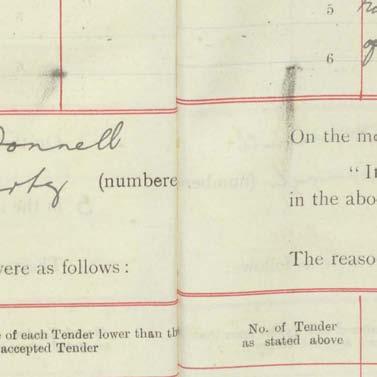 onnell
(numbere
were as follows:
e of each Tender lower than th
accepted Tender
5
6
On the mo
"It
in the abo
The reaso
No. of Tender
as stated above